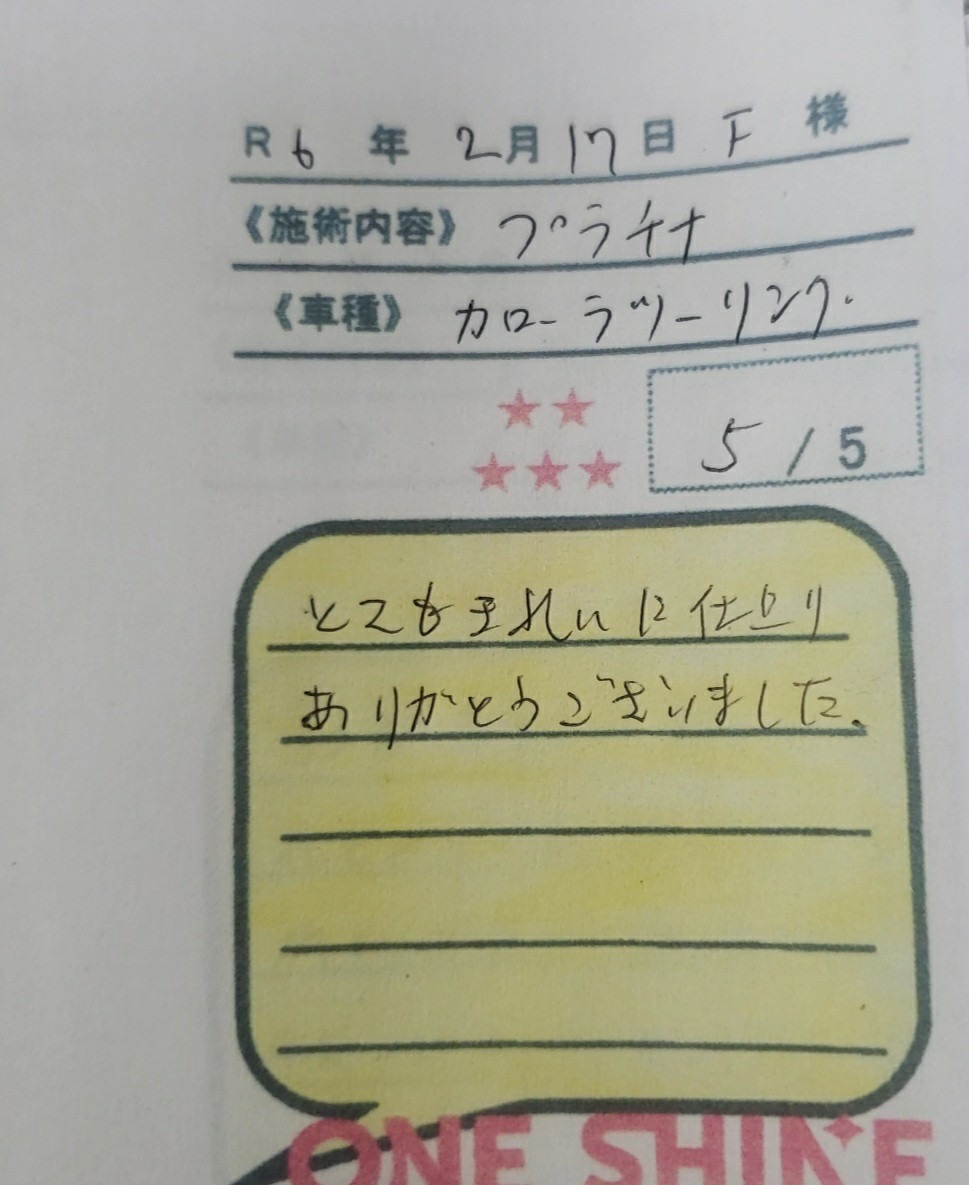 R6年2月17日 F 様
《施術内容》 プラチナ
《車種》 カローラツーリング.
5/5
とてもきれいに仕上り
ありがとうございました。
ONE SHINE